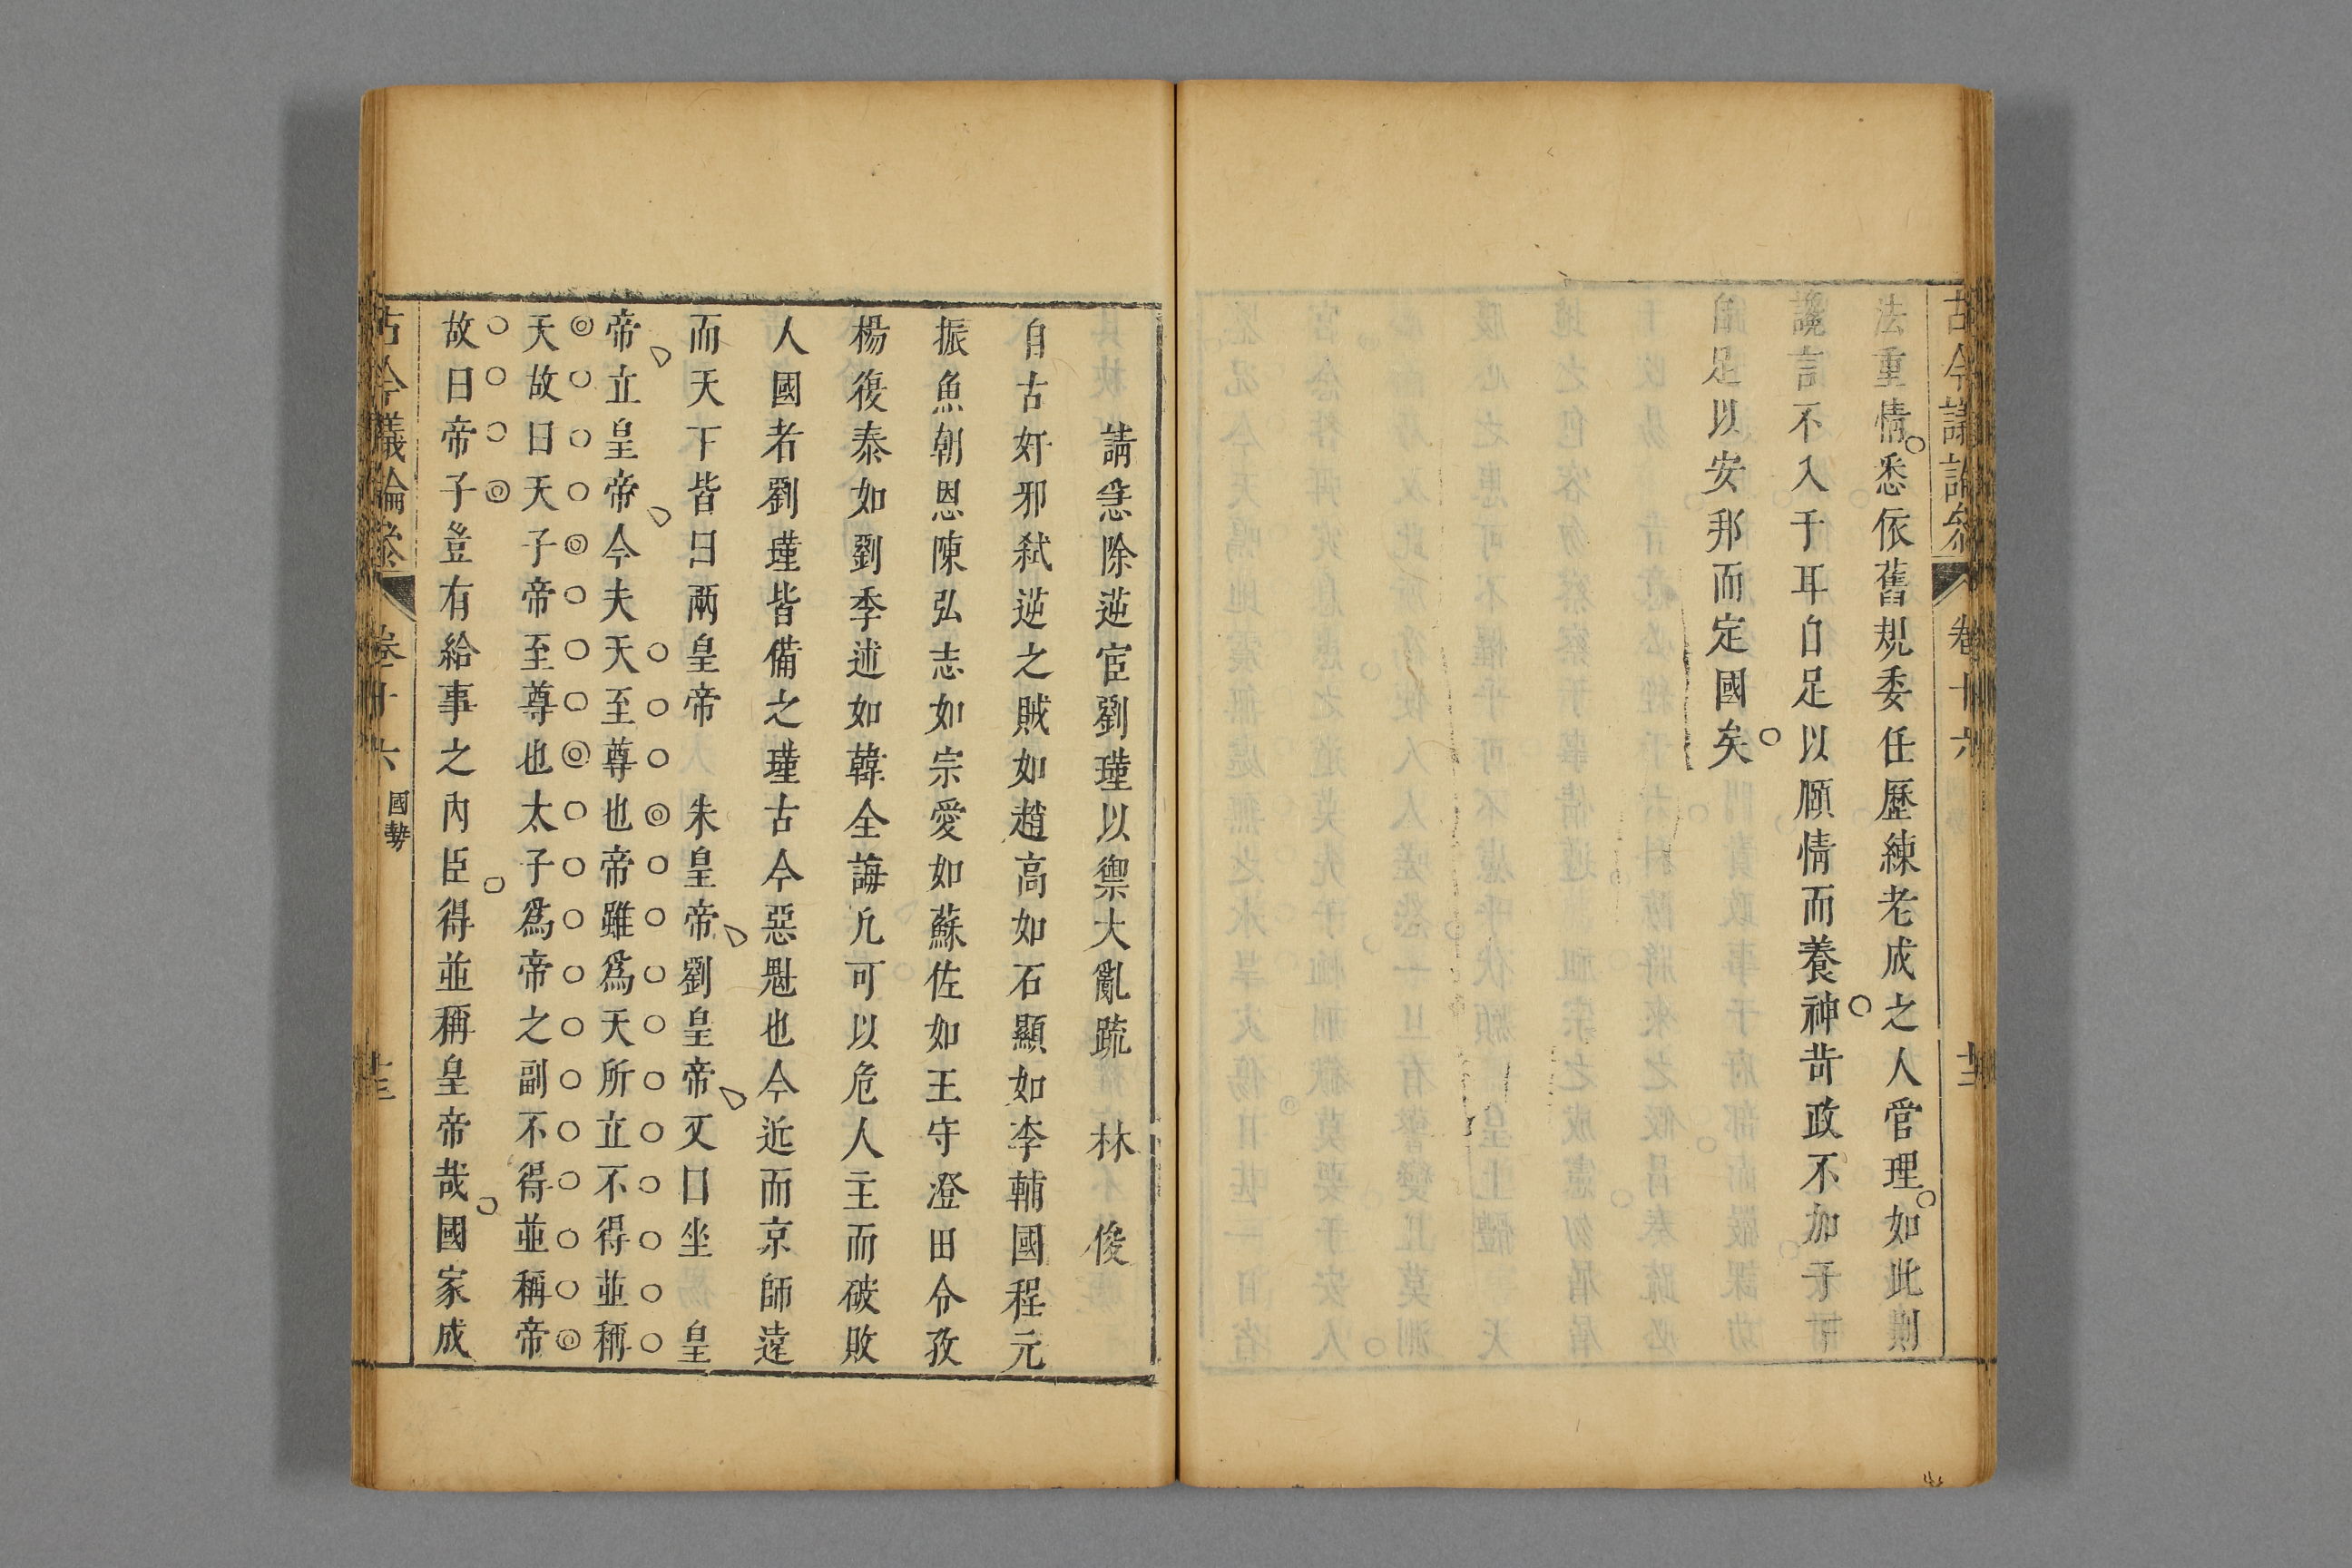 法重情悉依舊規委任歷練老成之人管理如此則
讒言不入于耳自足以頤情而養神苛政不加于
自足以安邦而定國矣
請急除逆宦劉瑾以禦大亂疏 林俊
自古奸邪弑逆之賊如趙高如石顯如李輔國程元
振魚朝恩陳弘志如宗愛如蘇佐如王守澄田令孜
楊復恭如劉季述如韓全誨凡可以危人主而破敗
人國者劉瑾皆備之瑾古今惡魁也今近而京師遠
而天下皆曰兩皇帝 朱皇帝劉皇帝又曰坐 皇
帝立皇帝今夫天至尊也帝雖爲天所立不得並稱
天故曰天子帝至尊也太子爲帝之副不得並稱帝
故曰帝子豈有給事之內臣得並稱皇帝哉國家成
古今議論參 卷十六 國勢